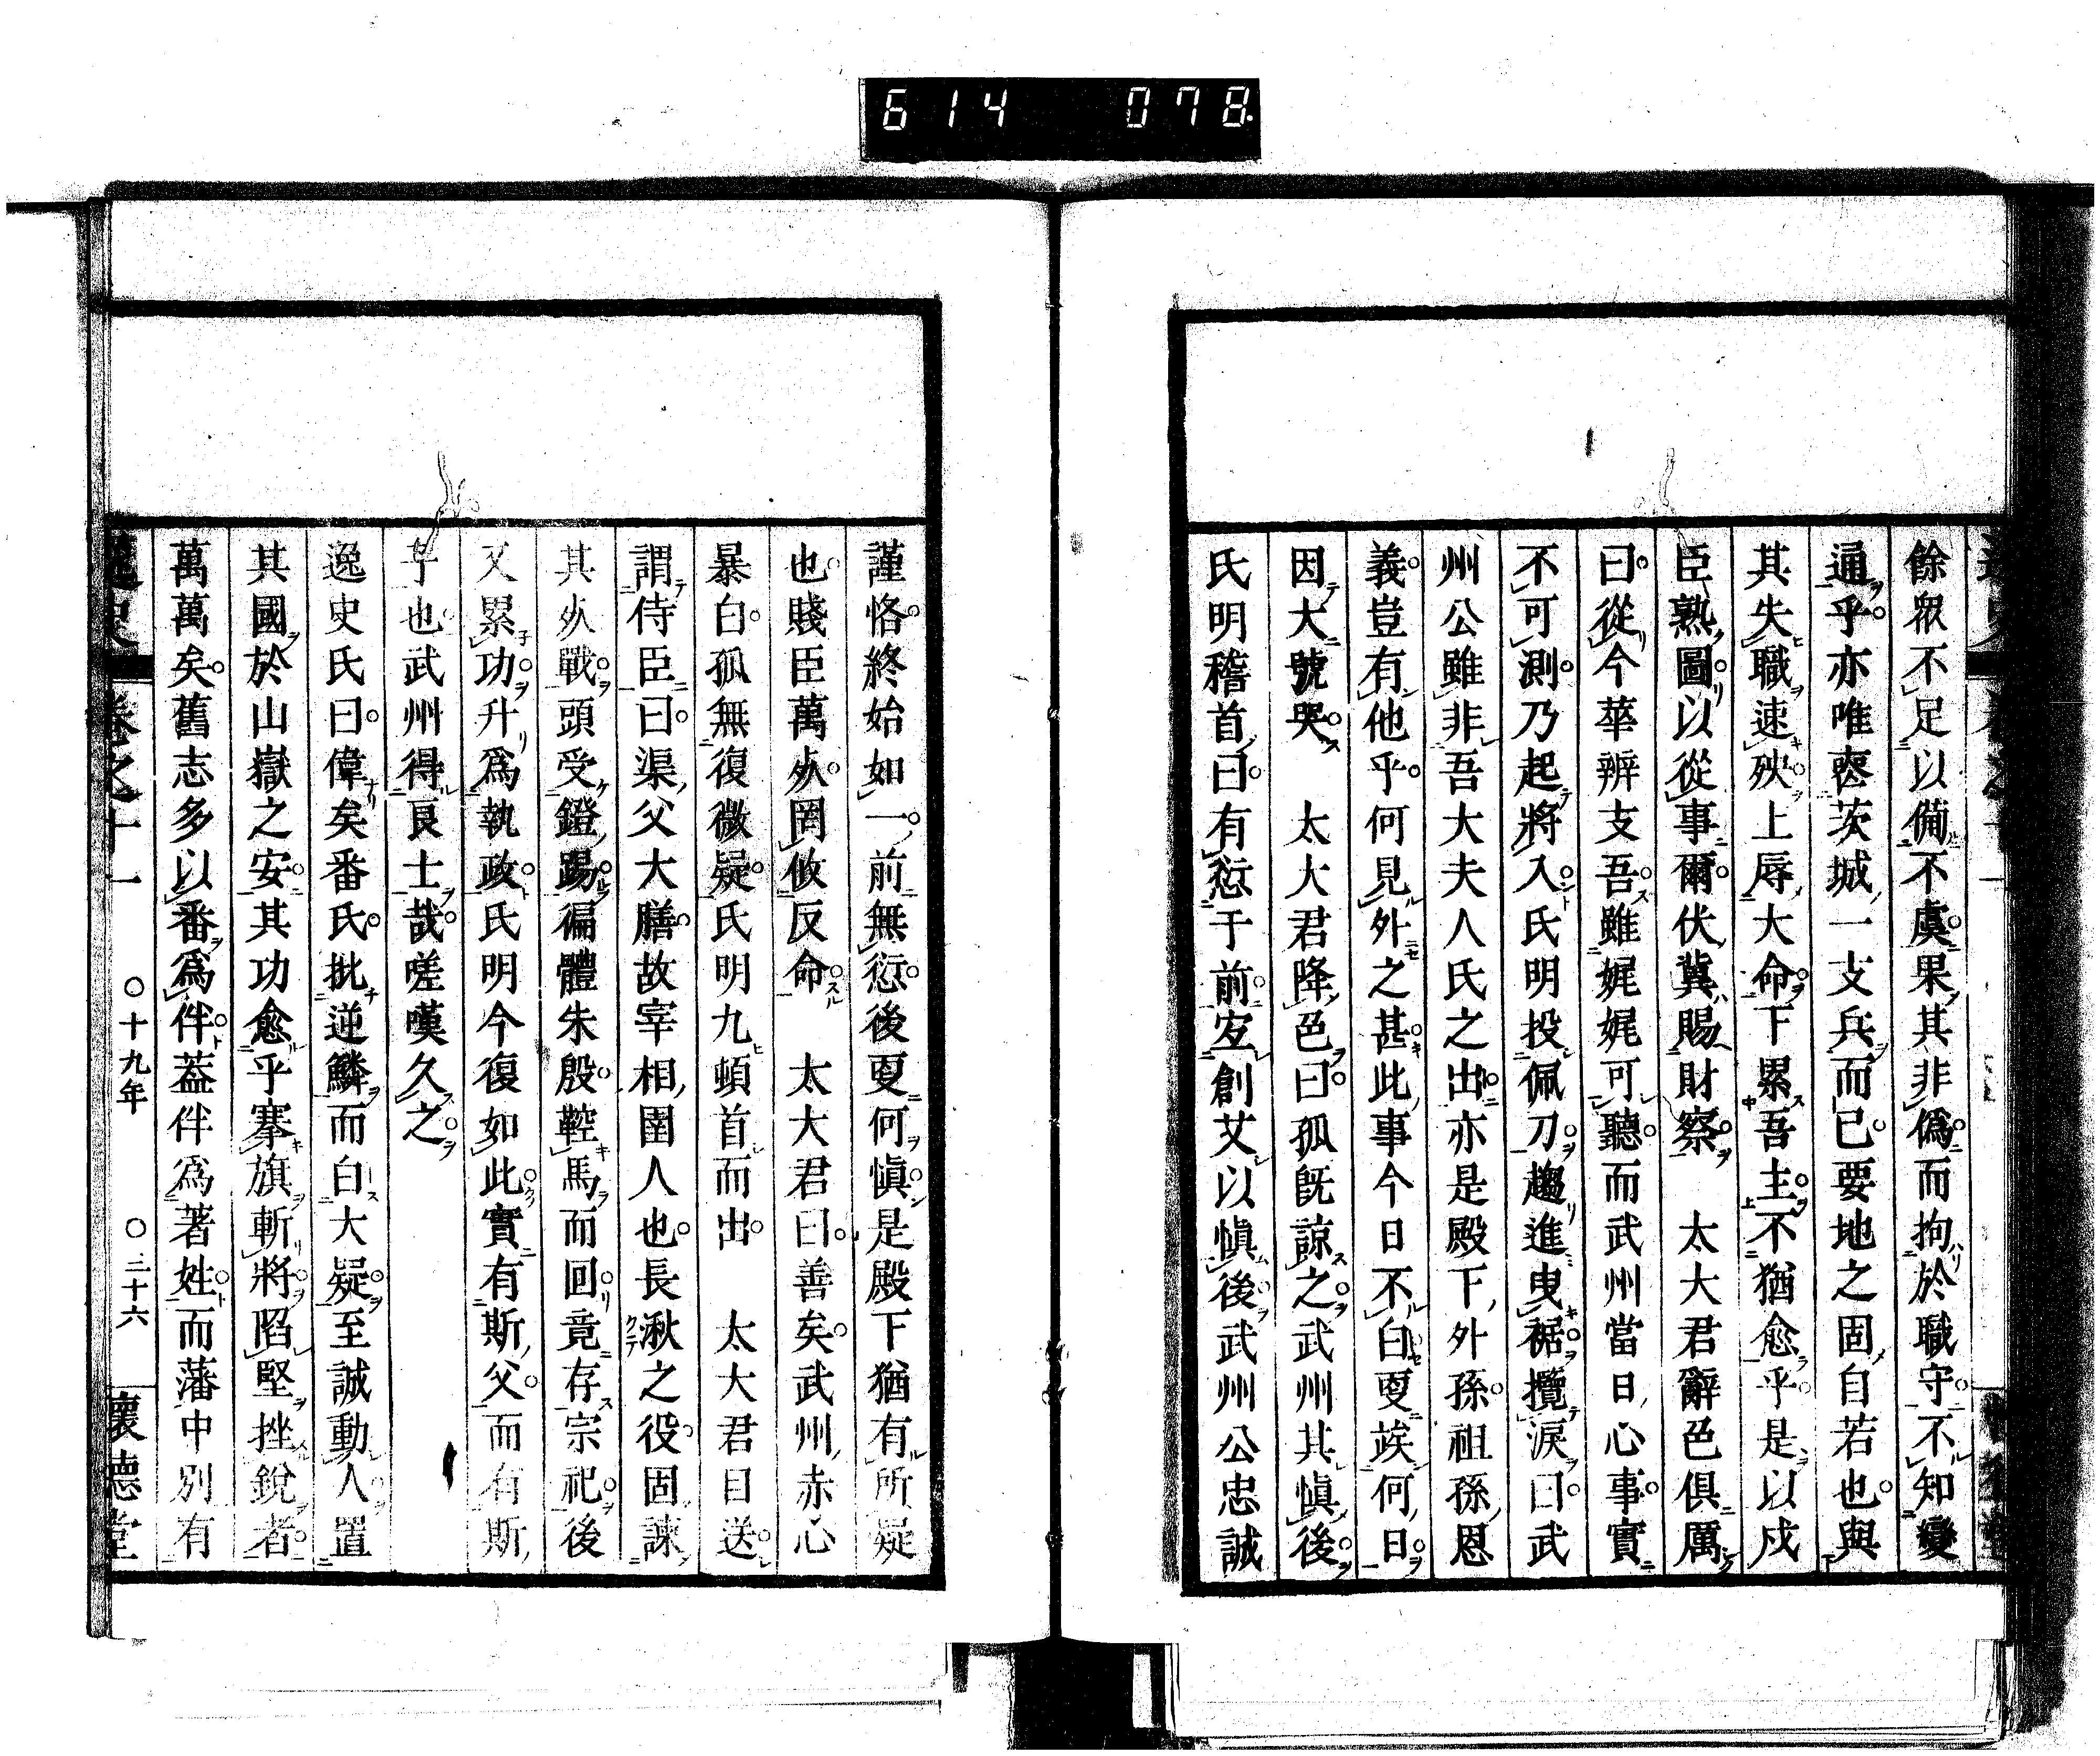 614 078.
餘衆不足以備不虞果其非僞而拘於職守不知變
通乎亦唯喪茨城一支兵而已要地之固自若也與
其失職速殃上辱大命下累吾主不猶愈乎是以戍
臣熟圖以從事爾伏冀賜財察　太大君辭色俱厲
曰從今華辨支吾雖娓娓可聽而武州當日心事實
不可測乃起將入氏明投佩刀趨進曳裾攬淚曰武
州公雖非吾大夫人氏之出亦是殿下外孫祖孫恩
義豈有他乎何見外之甚此事今日不白更竢何日
因大號哭　太大君降色曰孤既諒之武州其愼後
氏明稽首曰有愆于前宜創艾以愼後武州公忠誠
謹恪終始如一前無愆後更何愼是殿下猶有所疑
也賤臣萬死罔攸反命　太大君曰善矣武州赤心
暴白孤無復微疑氏明九頓首而出　太大君目送
謂侍臣曰渠父大膳故宰相圉人也長湫之役固諫
其死戰頭受鐙踢徧體朱殷鞚馬而回竟存宗祀後
又累功升爲執政氏明今復如此實有斯父而有斯
子也武州得良士哉嗟嘆久之
逸史氏曰偉矣番氏批逆鱗而白大疑至誠動人置
其國於山嶽之安其功愈乎搴旗斬將陷堅挫銳者
萬萬矣舊志多以番爲伴蓋伴爲著姓而藩中別有
逸史 卷之十一 ○十九年 ○三十六 懷德堂